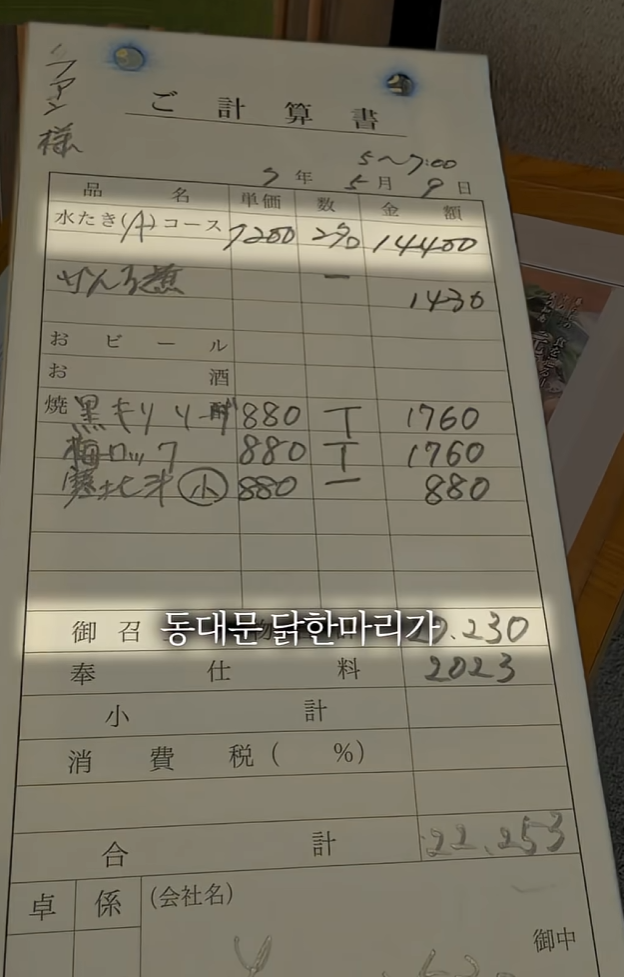 ファン様
ご計算書
5〜7:00
7年 5月 9日
品名 単価 数 金額
水たき(A)コース 7200 2名 14400
せんろ 一 1430
おビール
お酒
焼 黒キリ ソーダ 880 T 1760
梅ロック 880 T 1760
寒北斗 小 880 一 880
御召 物 20.230
동대문 닭한마리가
奉仕料 2023
小計
消費税( %)
合計 22,253
卓 係 (会社名)
御中